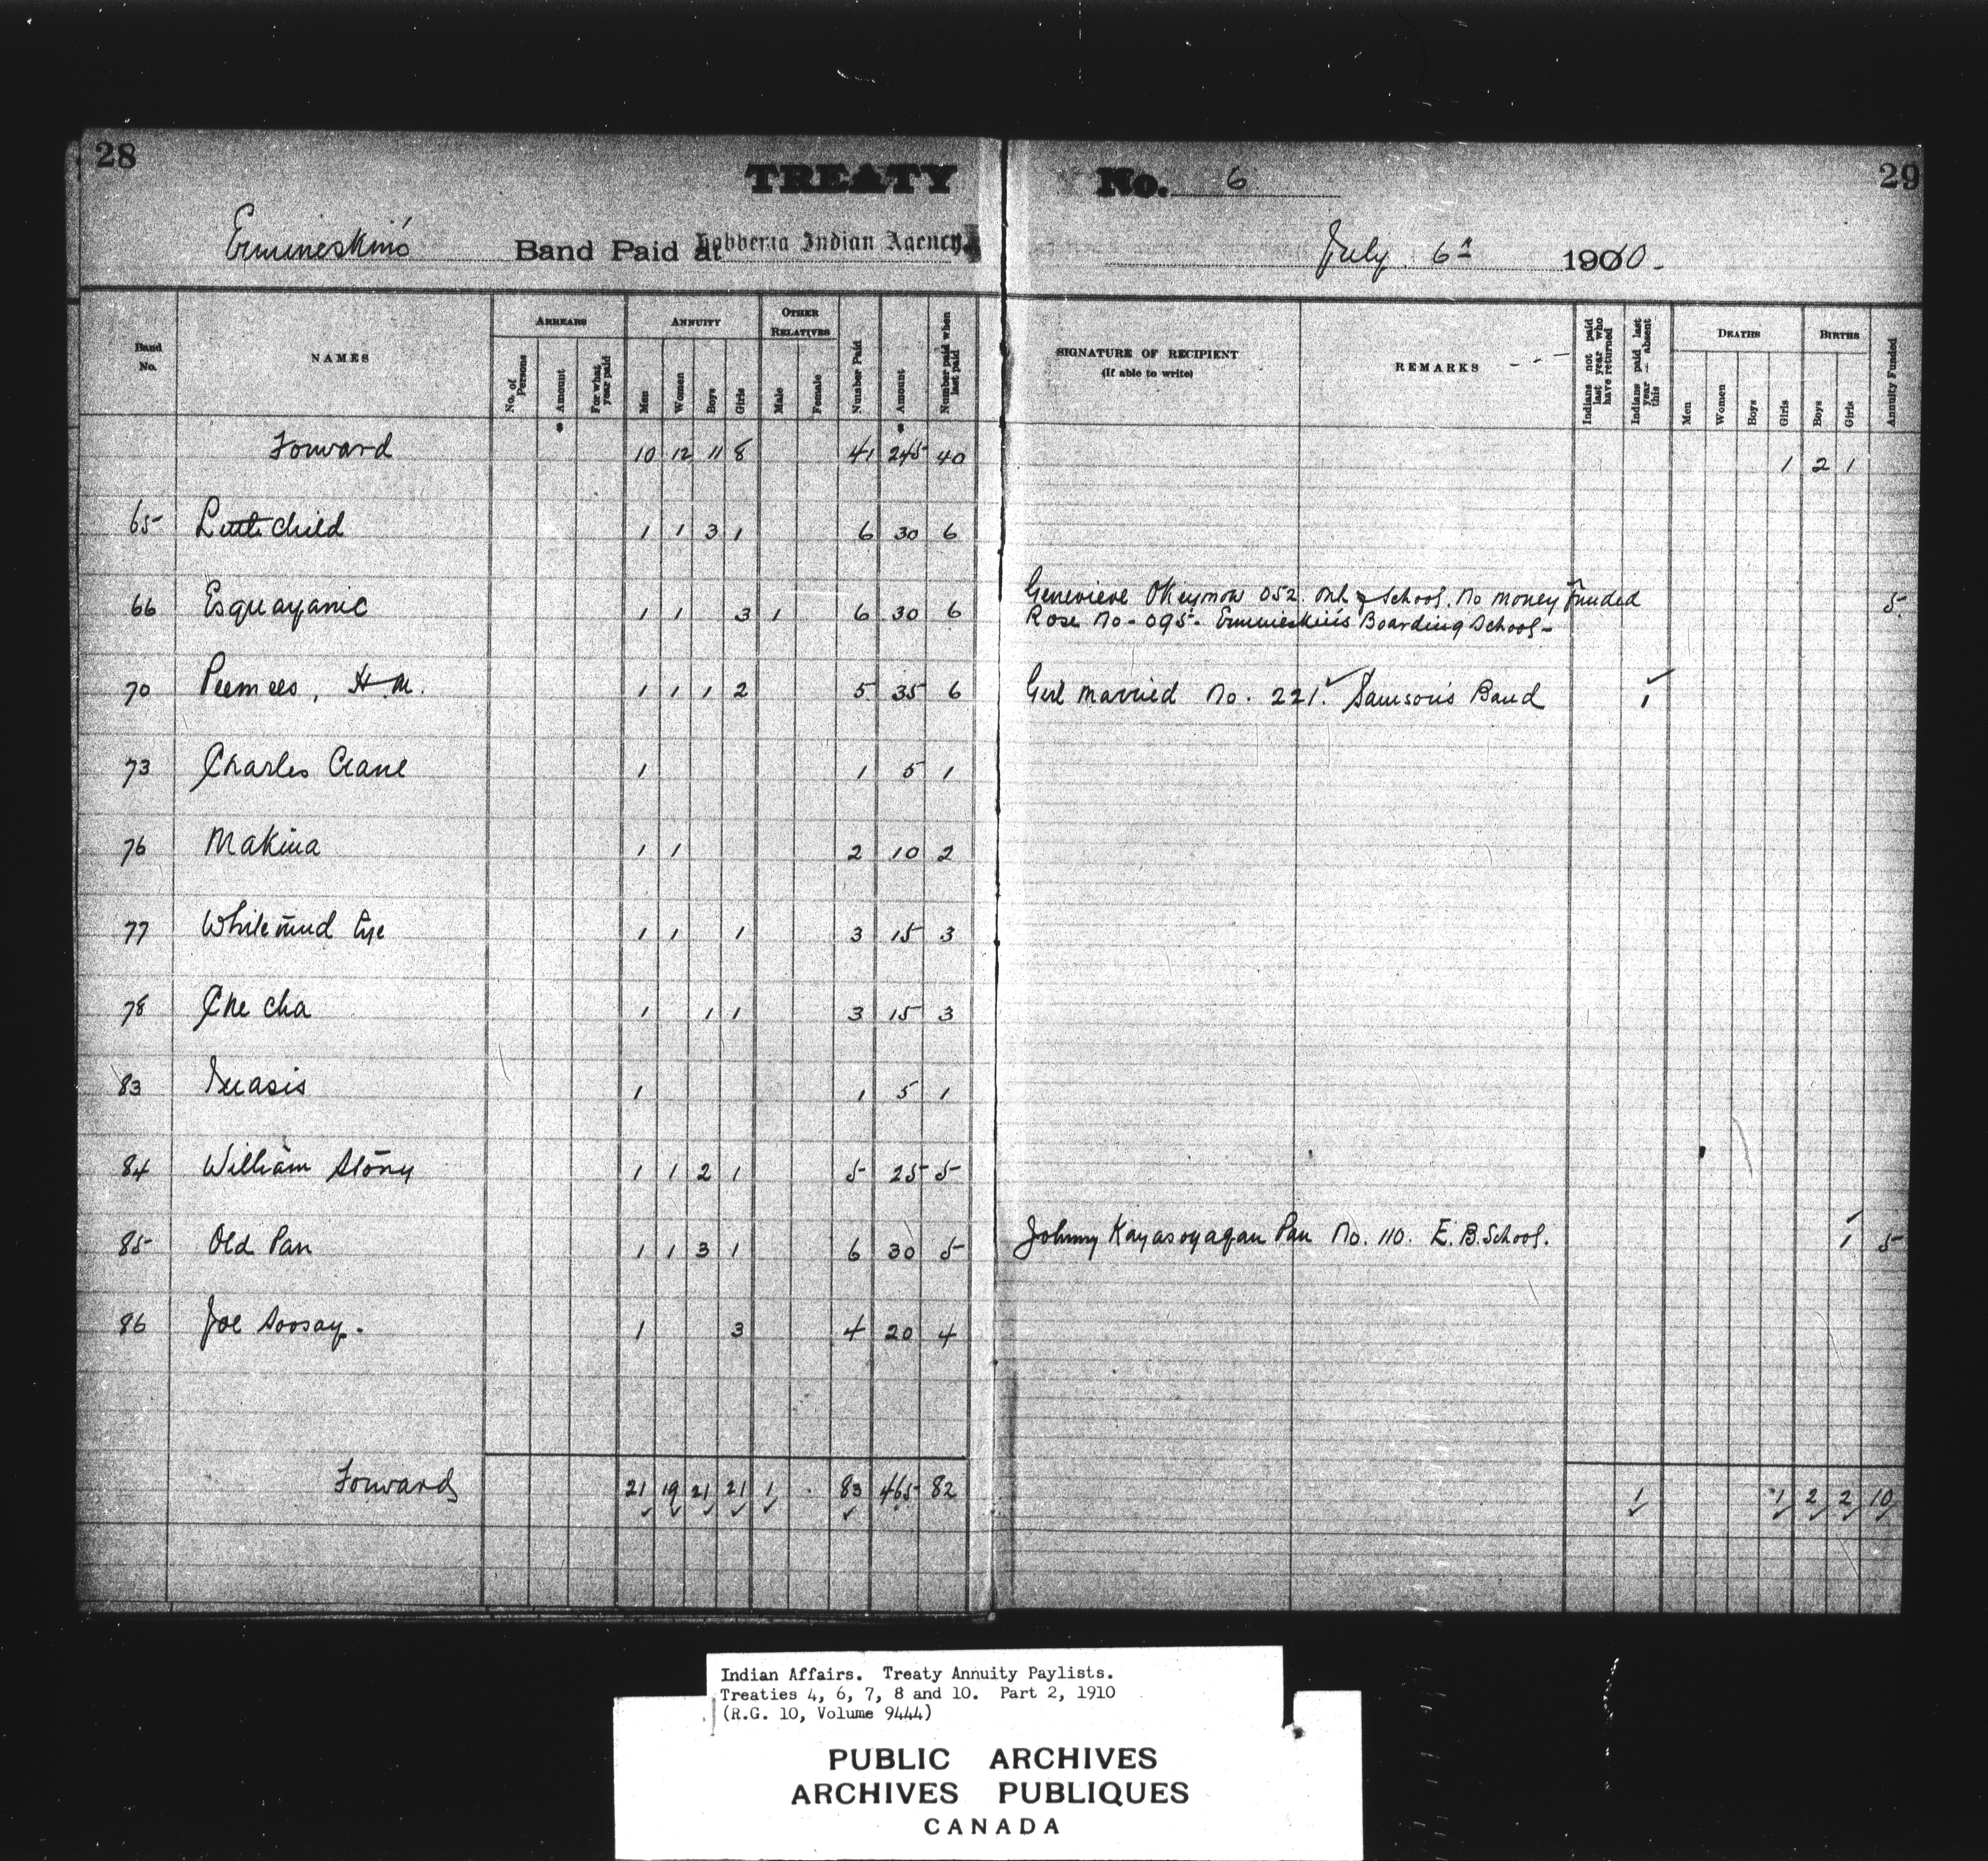 28
TREATY No. 6
29
Ermineskin's Band Paid at Hobbema Indian Agency, July 6th 1910.
Band No. NAMES ARREARS No. of Persons Amount For what year paid ANNUITY Men Women Boys Girls OTHER RELATIVES Male Female Number Paid Amount Number paid when last paid SIGNATURE OF RECIPIENT (If able to write) REMARKS Indians not paid last year who have returned Indians paid last year — absent this DEATHS Men Women Boys Girls BIRTHS Boys Girls Annuity Funded
Forward 10 12 11 8 41 245 40 1 2 1
65 Little Child 1 1 3 1 6 30 6
66 Esquayanic 1 1 3 1 6 30 6 Genevieve Okeymow 052. School. No money Funded 5
Rose No. 095. Ermineskin's Boarding School -
70 Peemees, H.M. 1 1 1 2 5 35 6 Girl married No. 221. Samson's Band 1
73 Charles Crane 1 1 5 1
76 Makina 1 1 2 10 2
77 Whitemud Eye 1 1 1 3 15 3
78 Che cha 1 1 1 3 15 3
83 1 1 5 1
84 William Stony 1 1 2 1 5 25 5
85 Old Pan 1 1 3 1 6 30 5 Johnny Kayasoyagan Pan No. 110. E.B. School. 1 5
86 Joe Soosay. 1 3 4 20 4
Forward 21 19 21 21 1 83 465 82 1 1 2 2 10
Indian Affairs. Treaty Annuity Paylists.
Treaties 4, 6, 7, 8 and 10. Part 2, 1910
(R.G. 10, Volume 9444)
PUBLIC ARCHIVES
ARCHIVES PUBLIQUES
CANADA